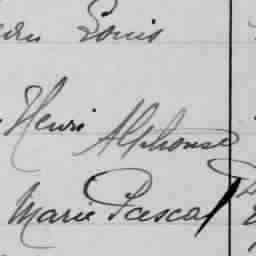 Louis
Henri Alphonse
Marie Pascal